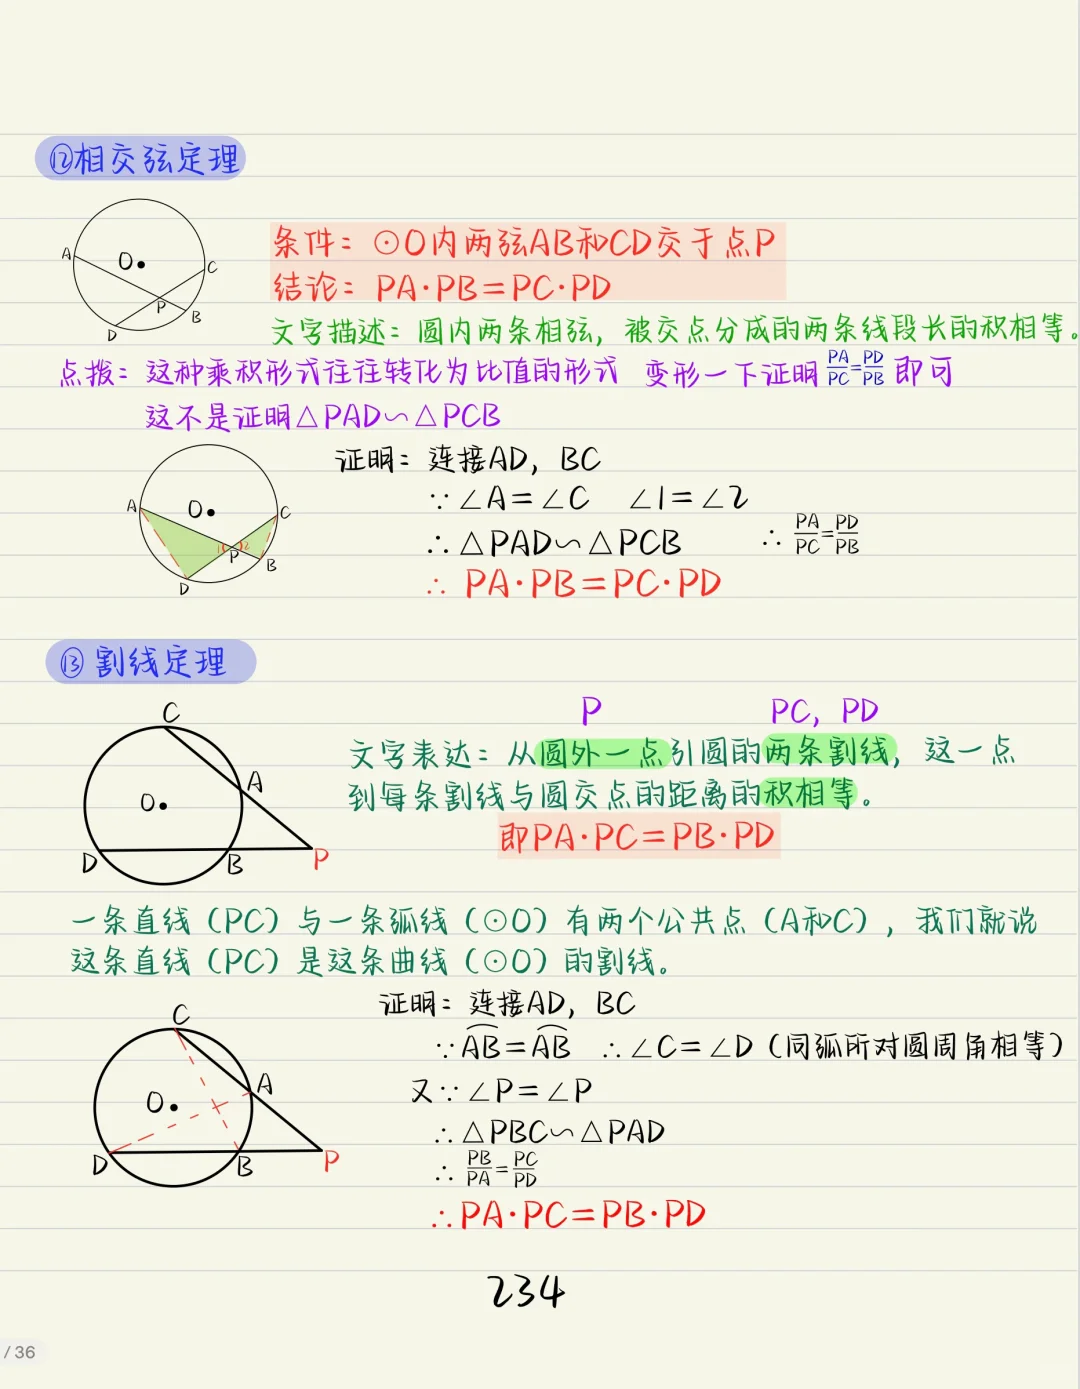 ⑫相交弦定理
A O C P B D
条件：⊙O内两弦AB和CD交于点P
结论：PA·PB=PC·PD
文字描述：圆内两条相弦，被交点分成的两条线段长的积相等。
点拨：这种乘积形式往往转化为比值的形式 变形一下证明PA/PC=PD/PB即可
这不是证明△PAD∽△PCB
A O C 1 2 P B D
证明：连接AD，BC
∵∠A=∠C ∠1=∠2
∴△PAD∽△PCB ∴PA/PC=PD/PB
∴ PA·PB=PC·PD
⑬割线定理
C A O D B P
P PC，PD
文字表达：从圆外一点引圆的两条割线，这一点
到每条割线与圆交点的距离的积相等。
即PA·PC=PB·PD
一条直线（PC）与一条弧线（⊙O）有两个公共点（A和C），我们就说
这条直线（PC）是这条曲线（⊙O）的割线。
C A O D B P
证明：连接AD，BC
∵AB=AB ∴∠C=∠D（同弧所对圆周角相等）
又∵∠P=∠P
∴△PBC∽△PAD
∴PB/PA=PC/PD
∴PA·PC=PB·PD
234
/ 36